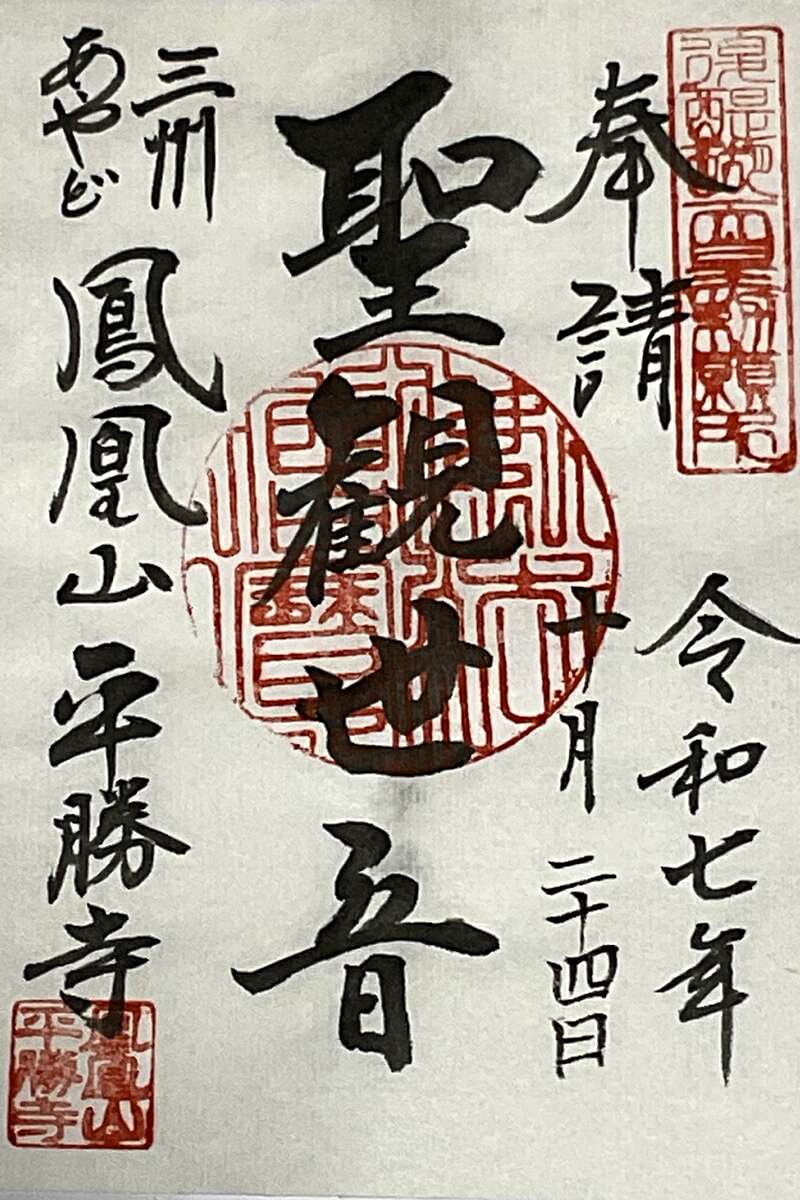 後醍醐天皇勅願所
奉請
令和七年
十月二十四日
聖観世音
三州
あやど
鳳凰山平勝寺
鳳凰山
平勝寺